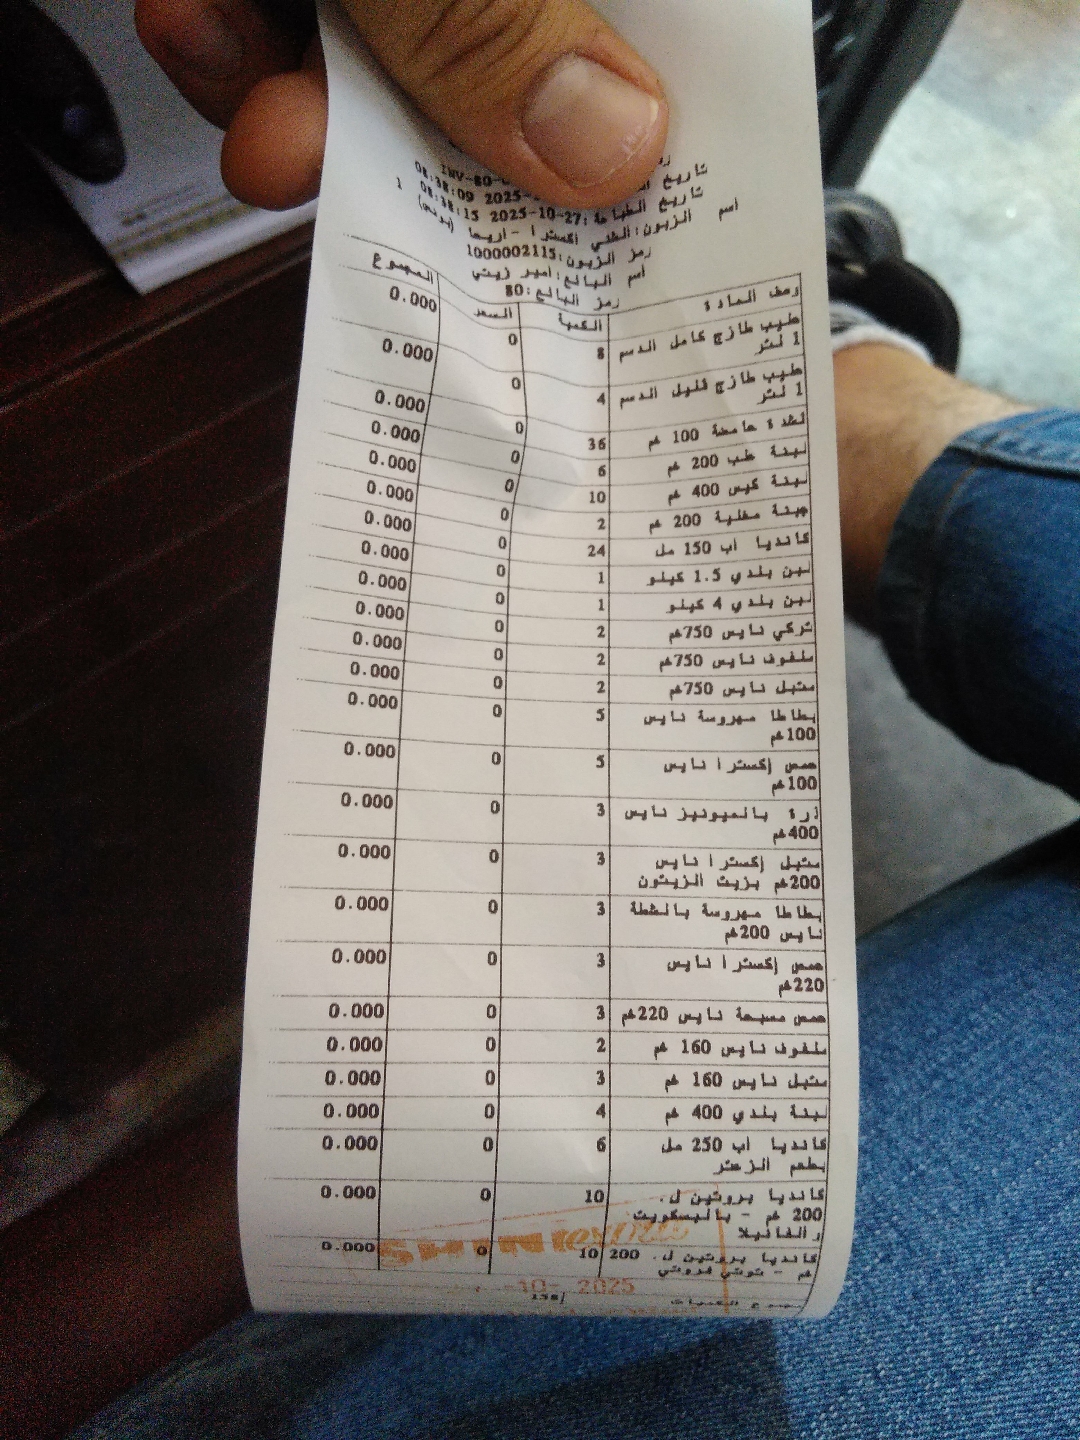 INV-80-
تاريخ 08:38:09 2025-
تاريخ الطباعة: 2025-10-27 08:38:15 1
اسم الزبون: الشني اكسترا - اريحا
رمز الزبون: 1000002115
اسم البائع: امير زيتي
رمز البائع: 80
وصف المادة الكمية السعر المجموع
حليب طازج كامل الدسم 8 0 0.000
1 لتر
حليب طازج قليل الدسم 4 0 0.000
1 لتر
قشدة حامضة 100 غم 36 0 0.000
لبنة علب 200 غم 6 0 0.000
لبنة كيس 400 غم 10 0 0.000
جبنة مغلية 200 غم 2 0 0.000
كانديا اب 150 مل 24 0 0.000
لبن بلدي 1.5 كيلو 1 0 0.000
لبن بلدي 4 كيلو 1 0 0.000
تركي نايس 750غم 2 0 0.000
ملفوف نايس 750غم 2 0 0.000
متبل نايس 750غم 2 0 0.000
بطاطا مهروسة نايس 5 0 0.000
100غم
حمص إكسترا نايس 5 0 0.000
100غم
ذرة بالميونيز نايس 3 0 0.000
400غم
متبل إكسترا نايس 3 0 0.000
200غم بزيت الزيتون
بطاطا مهروسة بالشطة 3 0 0.000
نايس 200غم
حمص إكسترا نايس 3 0 0.000
220غم
حمص مسبحة نايس 220غم 3 0 0.000
ملفوف نايس 160 غم 2 0 0.000
متبل نايس 160 غم 3 0 0.000
لبنة بلدي 400 غم 4 0 0.000
كانديا اب 250 مل 6 0 0.000
بطعم الزعتر
كانديا بروتين ل. 10 0 0.000
200 غم - بالبسكويت
و الفانيلا
كانديا بروتين ل. 200 10 0 0.000
غم - توتي فروتي
-10- 2025
مجموع الكميات 158